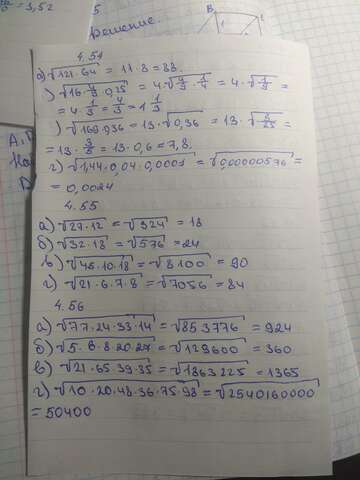 = 3,52
5
Решение.
B
4.54
а) √121·64 = 11·8 = 88.
) √16·4/9·0,25 = 4·√4/9·1/4 = 4·√1/9 =
= 4·1/3 = 4/3 = 1 1/3
) √169·0,36 = 13·√0,36 = 13·√9/25 =
= 13·3/5 = 13·0,6 = 7,8.
г) √1,44·0,04·0,0001 = √0,00000576 =
= 0,0024
4.55
а) √27·12 = √324 = 18
б) √32·18 = √576 = 24
в) √45·10·18 = √8100 = 90
г) √21·6·7·8 = √7056 = 84
4.56
а) √77·24·33·14 = √853776 = 924
б) √5·6·8·20·27 = √129600 = 360
в) √21·65·39·35 = √1863225 = 1365
г) √10·20·48·36·75·98 = √2540160000
= 50400